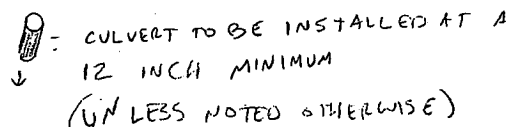 = CULVERT TO BE INSTALLED AT A
12 INCH MINIMUM
(UNLESS NOTED OTHERWISE)